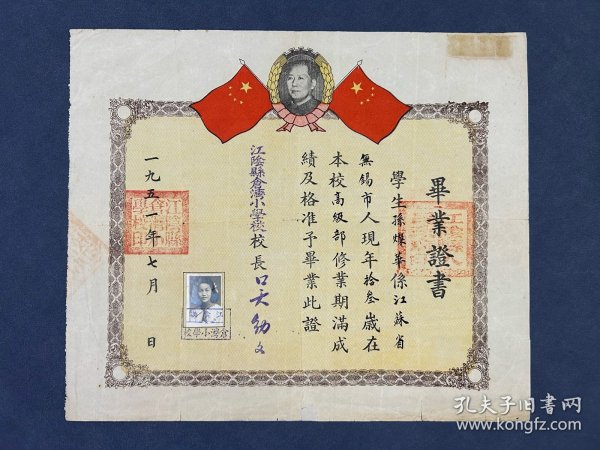 畢業證書
學生孫煤華係江蘇省
無錫市人現年拾叁歲在
本校高級部修業期滿成
績及格准予畢業此證
江陰縣倉溝小學校校長
一九五一年七月 日
孔夫子旧书网
www.kongfz.com